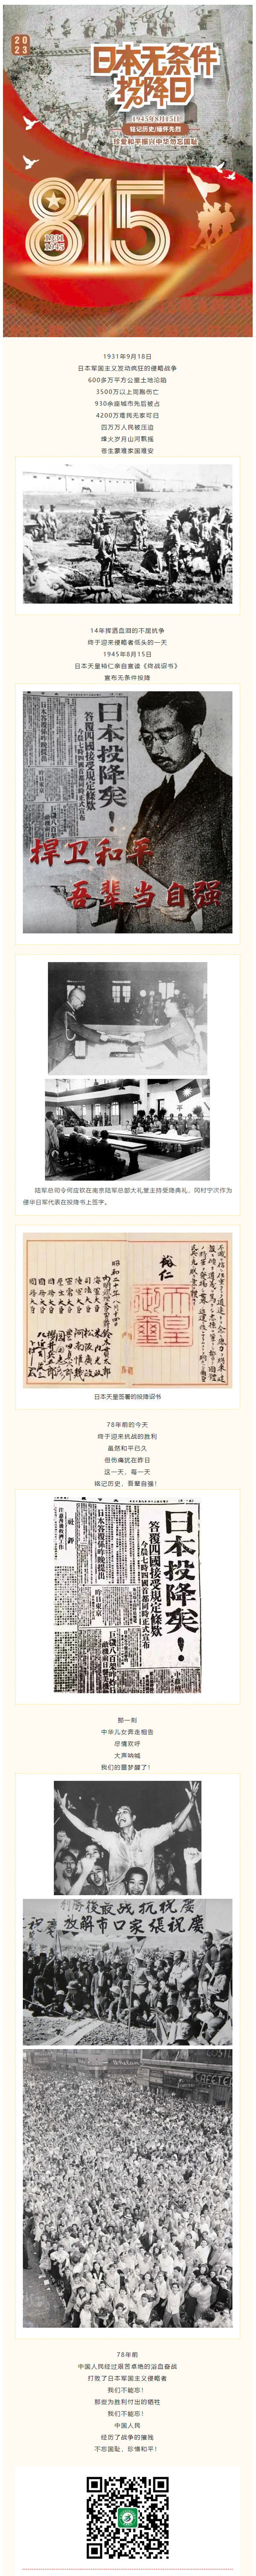 2023
日本无条件
投降日
1945年8月15日
铭记历史/缅怀先烈
珍爱和平振兴中华勿忘国耻
815
1931
1945
1931年9月18日
日本军国主义发动疯狂的侵略战争
600多万平方公里土地沦陷
3500万以上同胞伤亡
930余座城市先后被占
4200万难民无家可归
四万万人民被压迫
烽火岁月山河飘摇
苍生蒙难家国难安
14年挥洒血泪的不屈抗争
终于迎来侵略者低头的一天
1945年8月15日
日本天皇裕仁亲自宣读《终战诏书》
宣布无条件投降
日本投降矣！
答覆四國接受規定條款
今晨七時四國首都同時正式宣布
捍卫和平
吾辈当自强
陆军总司令何应钦在南京陆军总部大礼堂主持受降典礼，冈村宁次作为
侵华日军代表在投降书上签字。
裕仁
日本天皇签署的投降诏书
78年前的今天
终于迎来抗战的胜利
虽然和平已久
但伤痛犹在昨日
这一天，每一天
铭记历史，吾辈自强！
日本投降矣！
答覆四國接受規定條款
今晨七時四國首都同時正式宣布
日本答覆係昨晚提出
社評
那一刻
中华儿女奔走相告
尽情欢呼
大声呐喊
我们的噩梦醒了！
慶祝抗战最後勝利
慶祝張家口市解放
78年前
中国人民经过艰苦卓绝的浴血奋战
打败了日本军国主义侵略者
我们不能忘！
那些为胜利付出的牺牲
我们不能忘！
中国人民
经历了战争的摧残
不忘国耻，珍惜和平！